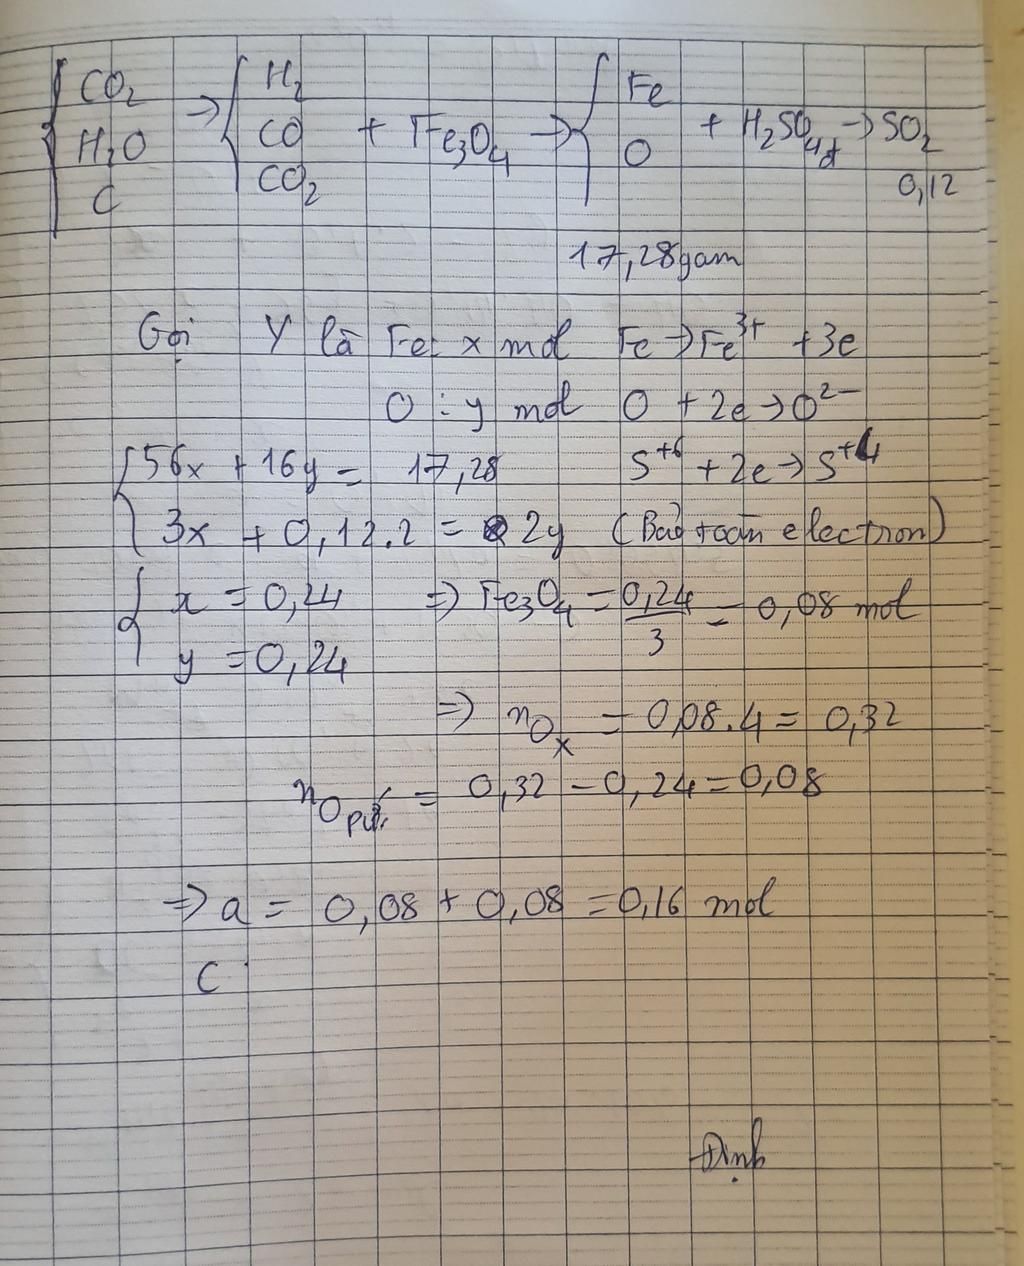 { CO₂ H₂O C ⇒ { H₂ CO CO₂ + Fe₃O₄ ⇒ { Fe O + H₂SO₄đ → SO₂
0,12
17,28gam
Gọi Y là Fe: x mol Fe → Fe³⁺ + 3e
O : y mol O + 2e → O²⁻
{ 56x + 16y = 17,28 S⁺⁶ + 2e → S⁺⁴
3x + 0,12.2 = 2y (Bảo toàn electron)
{ x = 0,24 ⇒ Fe₃O₄ = 0,24/3 = 0,08 mol
y = 0,24
⇒ nO_X = 0,08.4 = 0,32
nO pứ = 0,32 - 0,24 = 0,08
⇒ a = 0,08 + 0,08 = 0,16 mol
C
Định